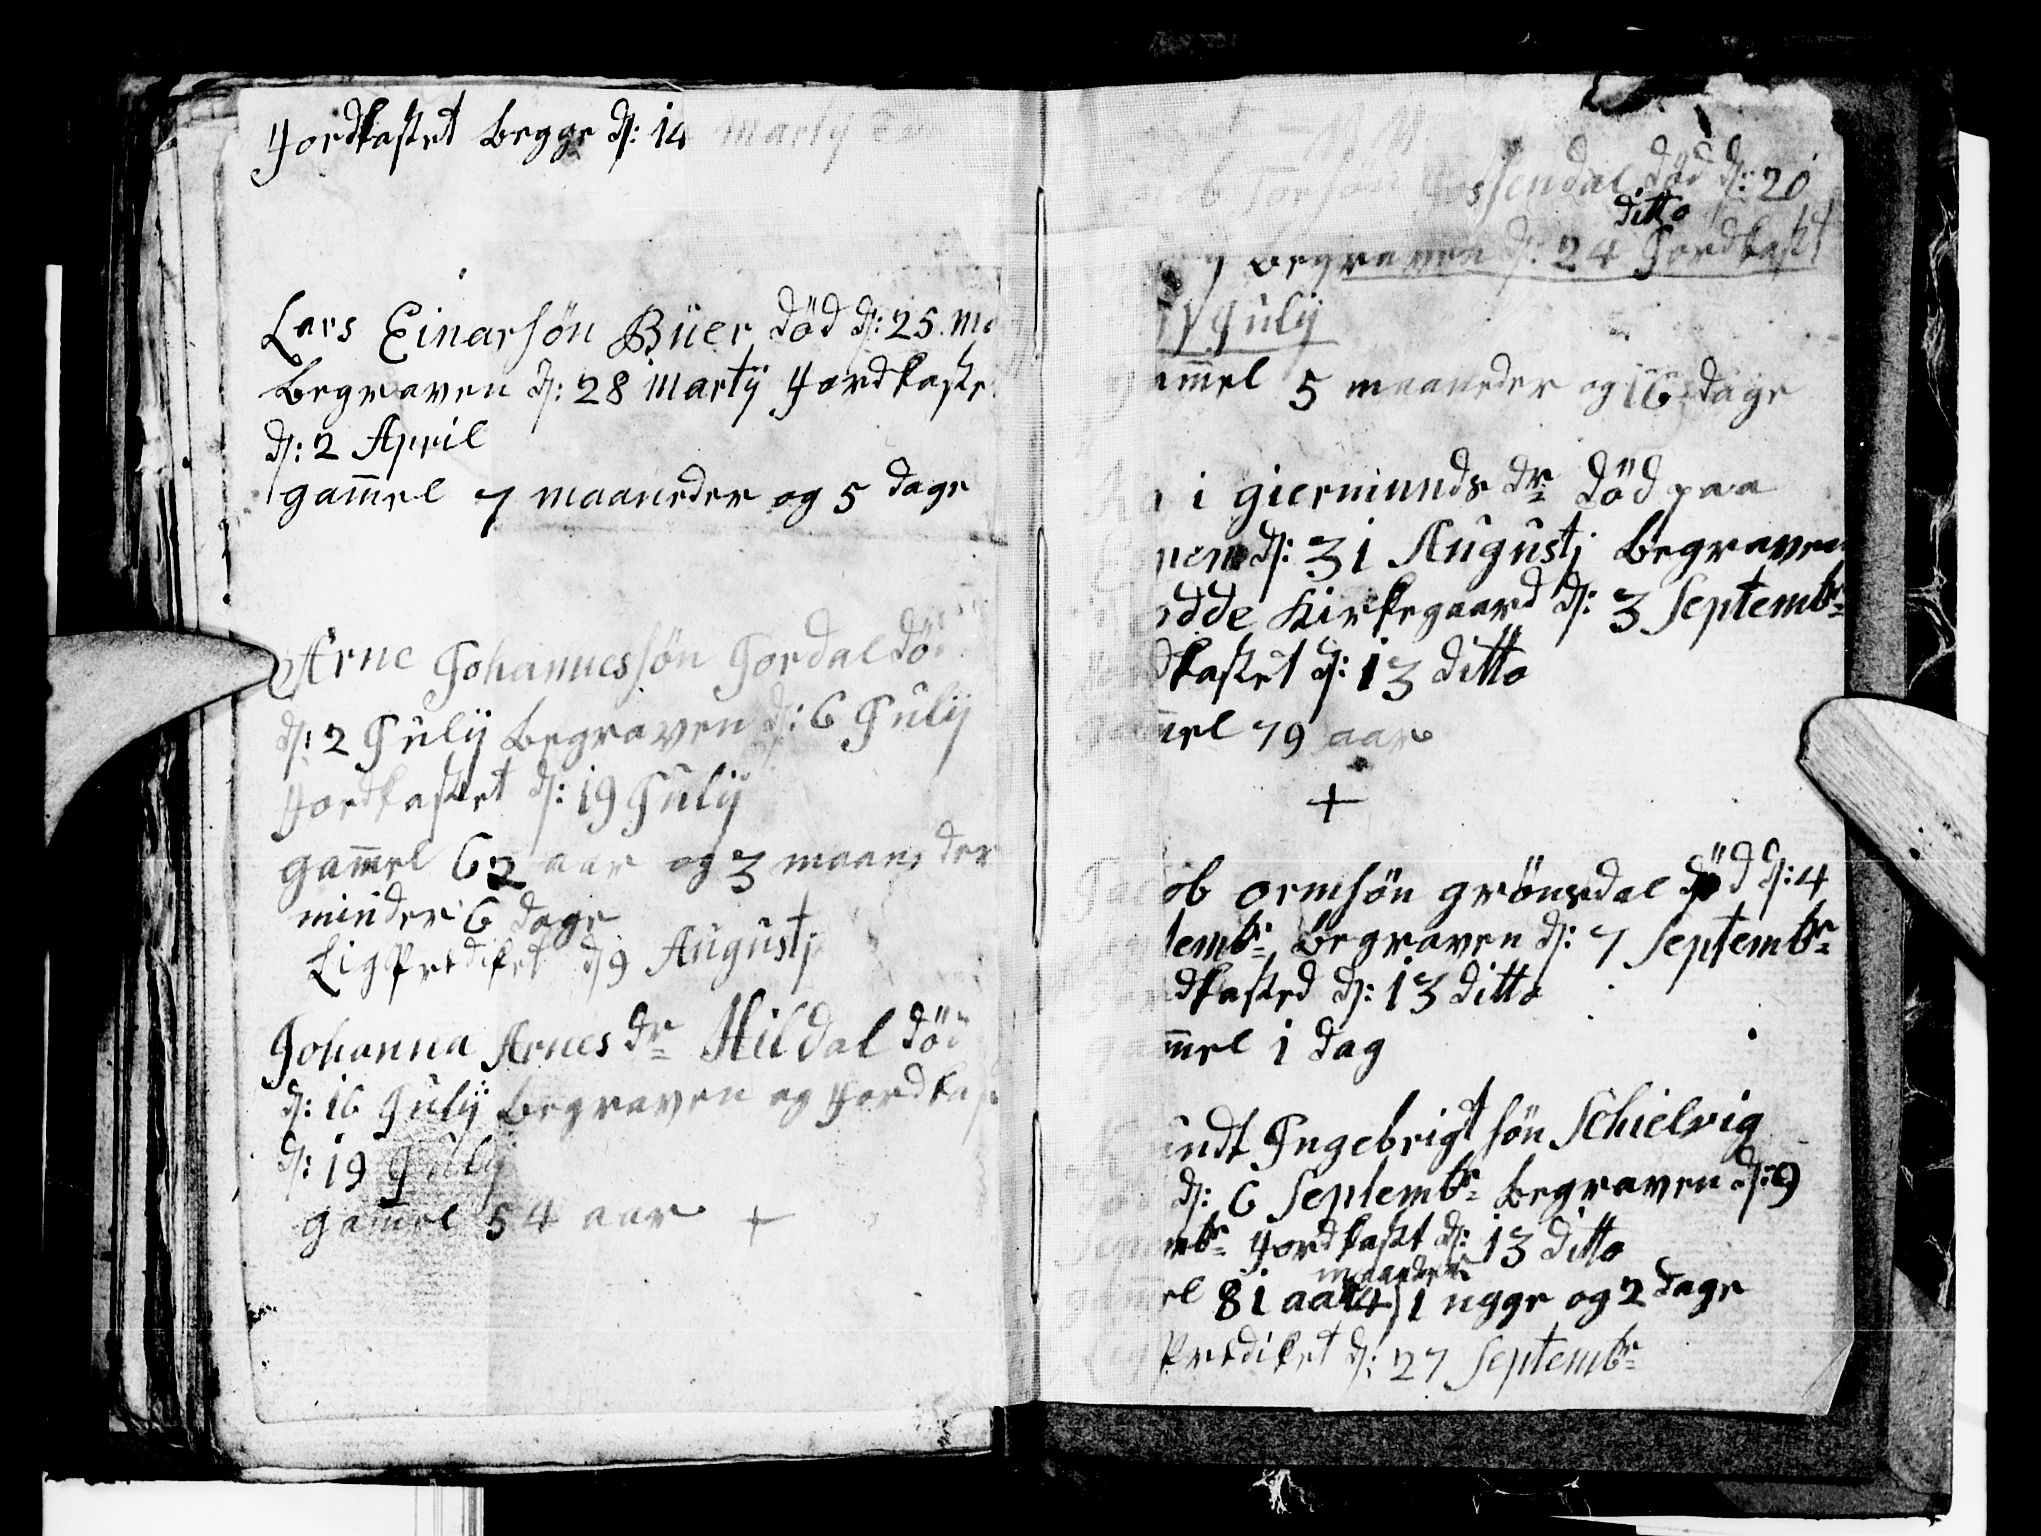 Jordkastet begge d: 14 Martij
Lars Einarsön Büer död d: 25. M
begraven d: 28 Martij Jordkaste
d: 2 April
gam̄el 7 maaneder og 5 dage
Arne Johannessön Jordal dö
d: 2 Julij begraven d: 6 Julij
Jordkastet d: 19 Julij
gam̄el 62 aar og 3 maaneder
minder 6 dage
Ligprediket d 9 Augustj
Johanna Arnes dr Hildal död
d: 16 Julij begraven og Jordkas
d: 19 Julij
gam̄el 54 aar +
Torsön död d: 20
ditto
begraven d: 24 Jordkast
Julij
gam̄el 5 maaneder og 16 dage
i giermunds dr död paa
d: 31 Augustj begraven
odde Kirkegaard d: 3 Septembr
Jordkastet d: 13 ditto
gam̄el 79 aar
+
Jacob ormsön grönsdal död d: 4
Septembr begraven d: 7 Septembr
Jordkasted d: 13 ditto
gam̄el 1 dag
undt Ingebrigtsön Schielvig
död d: 6 Septembr begraven d: 9
Septembr Jordkast d: 13 ditto
maaneder
gam̄el 81 aar 4 1 ugge og 2 dage
Ligprediket d: 27 Septembr